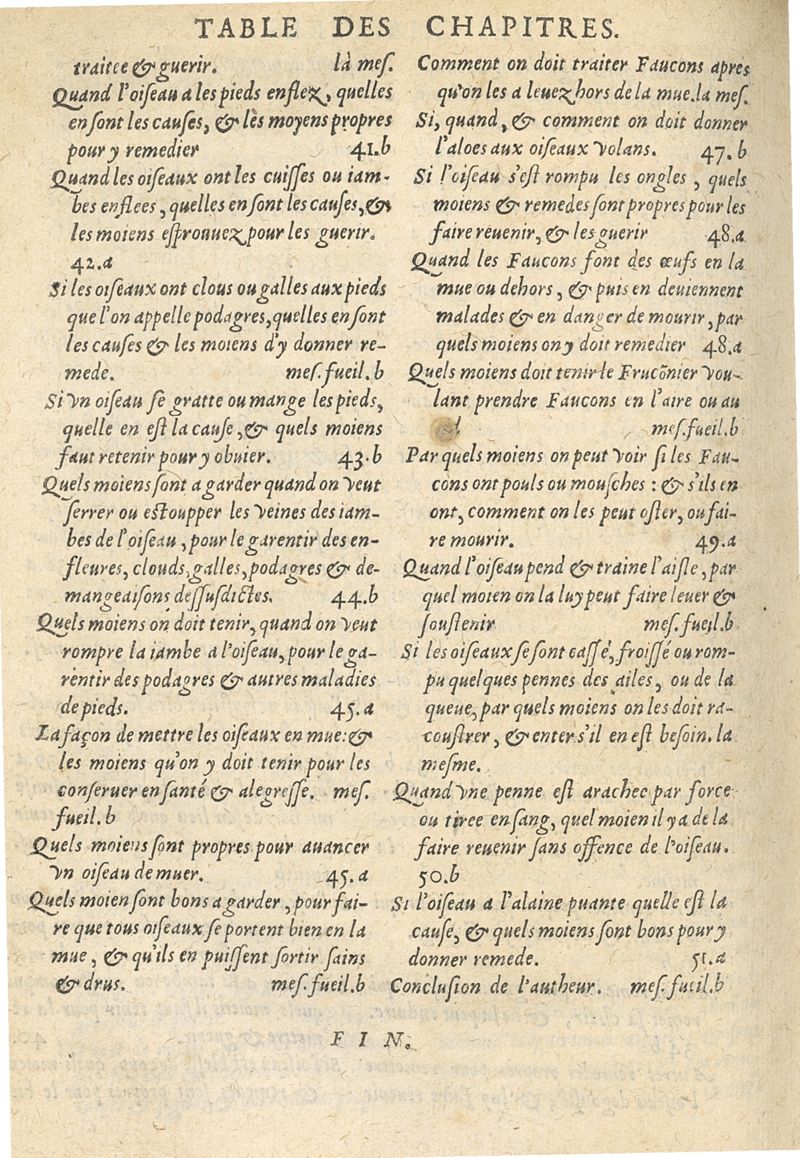 TABLE DES CHAPITRES.
traitee & guerir. là mes.
Quand l'oiſeau a les pieds enflez, quelles
en ſont les cauſes, & les moyens propres
pour y remedier 41.b
Quand les oiſeaux ont les cuiſſes ou iam-
bes enflees, quelles en ſont les cauſes, &
les moiens eſprouuez pour les guerir.
42.a
Si les oiſeaux ont clous ou galles aux pieds
que l'on appelle podagres, quelles en ſont
les cauſes & les moiens d'y donner re-
mede. meſ. fueil. b
Si vn oiſeau ſe gratte ou mange les pieds,
quelle en eſt la cauſe, & quels moiens
faut retenir pour y obuier. 43.b
Quels moiens ſont a garder quand on veut
ſerrer ou eſtoupper les veines des iam-
bes de l'oiſeau, pour le garentir des en-
fleures, clouds, galles, podagres & de-
mangeaiſons deſſuſdictes. 44.b
Quels moiens on doit tenir, quand on veut
rompre la iambe a l'oiſeau, pour le ga-
rentir des podagres & autres maladies
de pieds. 45.a
La façon de mettre les oiſeaux en mue: &
les moiens qu'on y doit tenir pour les
conſeruer en ſanté & alegreſſe. meſ.
fueil. b
Quels moiens ſont propres pour auancer
vn oiſeau de muer. 45.a
Quels moien ſont bons a garder, pour fai-
re que tous oiſeaux ſe portent bien en la
mue, & qu'ils en puiſſent ſortir ſains
& drus. meſ. fueil. b
Comment on doit traiter Faucons apres
qu'on les a leuez hors de la mue. la meſ.
Si, quand, & comment on doit donner
l'aloes aux oiſeaux volans. 47.b
Si l'oiſeau s'eſt rompu les ongles, quels
moiens & remedes ſont propres pour les
faire reuenir, & les guerir 48.a
Quand les Faucons font des œufs en la
mue ou dehors, & puis en deuiennent
malades & en danger de mourir, par
quels moiens on y doit remedier 48.a
Quels moiens doit tenir le Frucõnier vou-
lant prendre Faucons en l'aire ou au
meſ. fueil. b
Par quels moiens on peut voir ſi les Fau-
cons ont pouls ou mouſches: & s'ils en
ont, comment on les peut oſter, ou fai-
re mourir. 49.a
Quand l'oiſeau pend & traine l'aiſle, par
quel moien on la luy peut faire leuer &
ſouſtenir meſ. fueil. b
Si les oiſeaux ſe ſont caſſé, froiſſé ou rom-
pu quelques pennes des ailes, ou de la
queue, par quels moiens on les doit ra-
couſtrer, & enter s'il en eſt beſoin. la
meſme.
Quand vne penne eſt arachee par force
ou tiree en ſang, quel moien il y a de la
faire reuenir ſans offence de l'oiſeau.
50.b
Si l'oiſeau a l'alaine puante quelle eſt la
cauſe, & quels moiens ſont bons pour y
donner remede. 51.a
Concluſion de l'autheur. meſ. fueil. b
FIN.